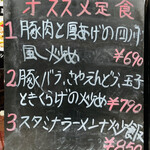 オススメ定食
1 豚肉と厚あげの四川
風ピリ辛炒め ¥690
2 豚バラ、さやえんどう、玉子
ときくらげの炒め ¥790
3 スタミナラーメンナメ炒飯
¥850